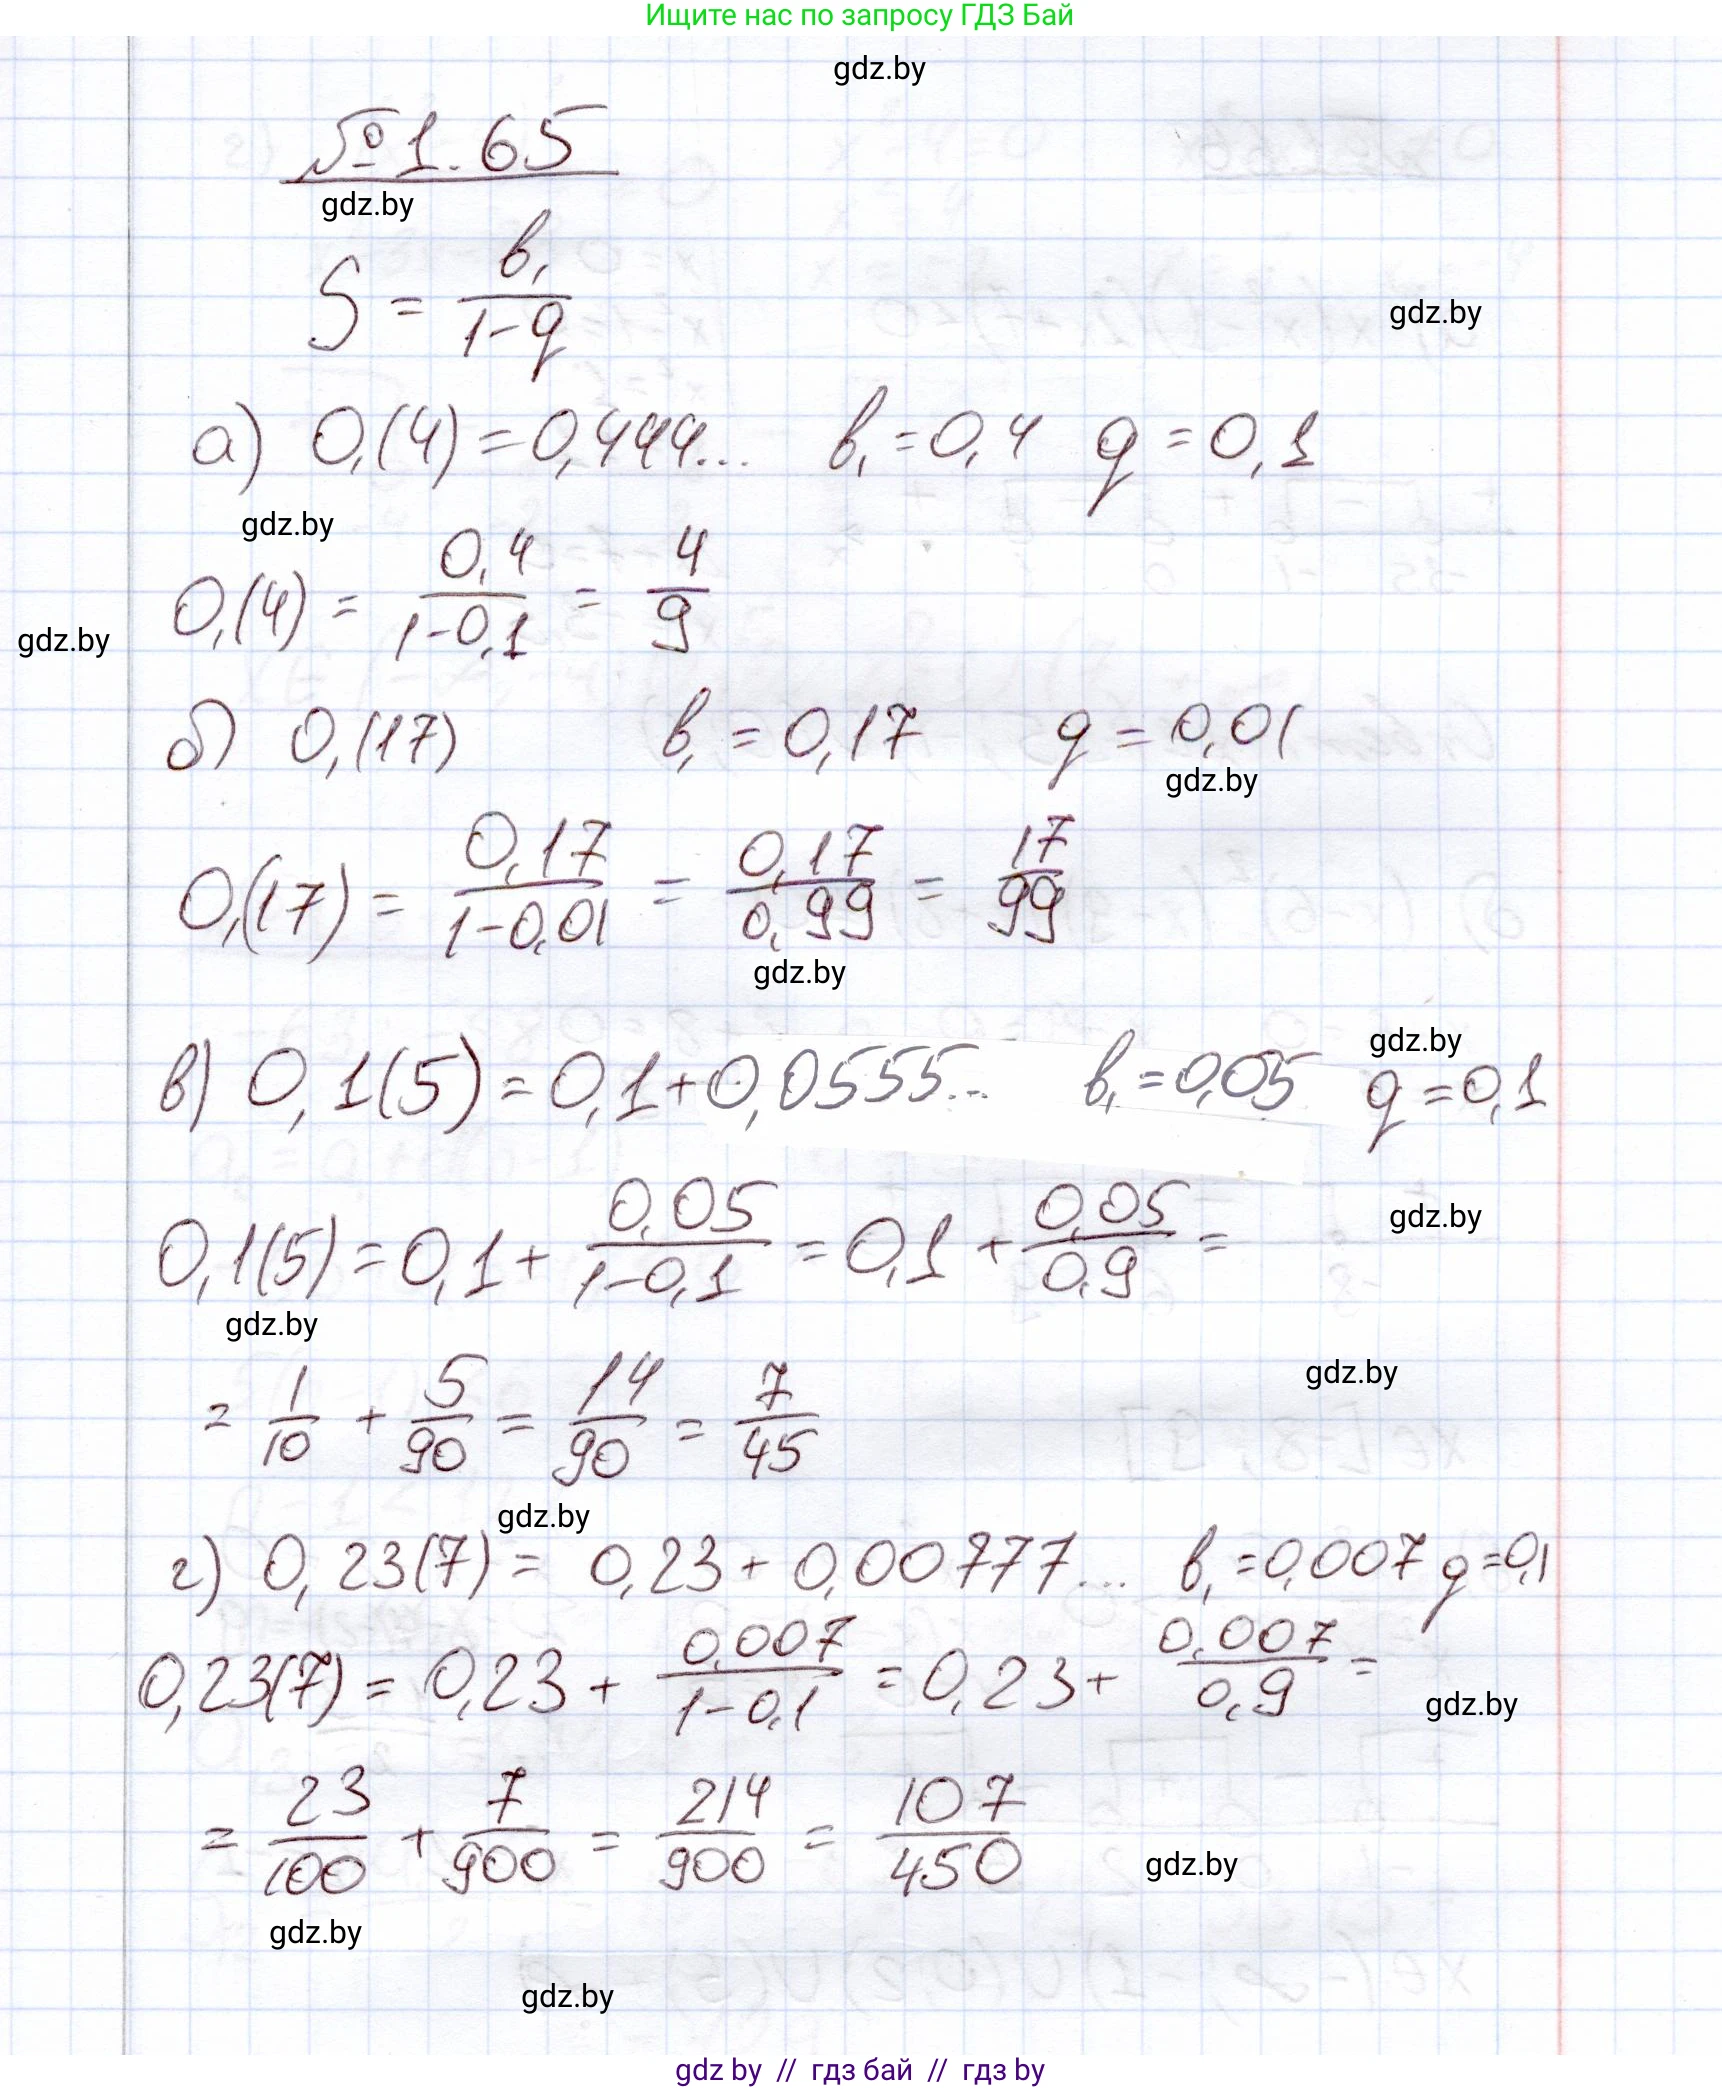 Ищите нас по запросу ГДЗ Бай
gdz.by
№1.65
gdz.by
S = b₁/(1-q)
gdz.by
а) 0,(4) = 0,444... b₁ = 0,4 q = 0,1
gdz.by
0,(4) = 0,4/(1-0,1) = 4/9
gdz.by
б) 0,(17) b₁ = 0,17 q = 0,01
gdz.by
0,(17) = 0,17/(1-0,01) = 0,17/0,99 = 17/99
gdz.by
gdz.by
в) 0,1(5) = 0,1 + 0,0555... b₁ = 0,05 q = 0,1
0,1(5) = 0,1 + 0,05/(1-0,1) = 0,1 + 0,05/0,9 =
gdz.by
gdz.by
gdz.by
= 1/10 + 5/90 = 14/90 = 7/45
gdz.by
г) 0,23(7) = 0,23 + 0,00777... b₁ = 0,007 q = 0,1
0,23(7) = 0,23 + 0,007/(1-0,1) = 0,23 + 0,007/0,9 =
gdz.by
= 23/100 + 7/900 = 214/900 = 107/450
gdz.by
gdz.by
gdz.by
gdz by // гдз бай // гдз by